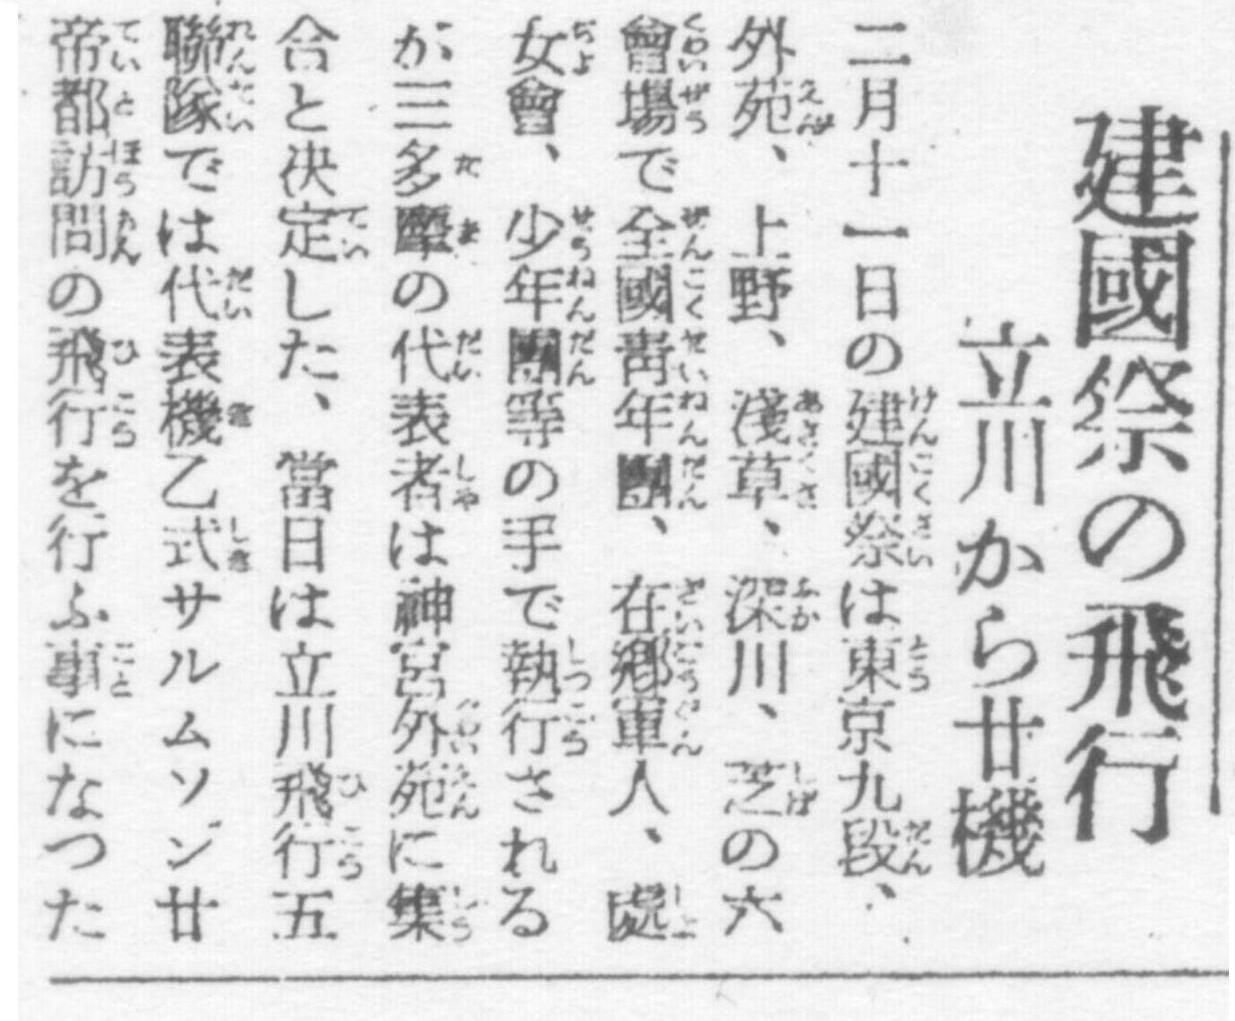 建國祭の飛行
立川から廿機
二月十一日の建國祭は東京九段、
外苑、上野、淺草、深川、芝の六
會場で全國靑年團、在鄕軍人、處
女會、少年團等の手で執行される
が三多摩の代表者は神宮外苑に集
合と決定した、當日は立川飛行五
聯隊では代表機乙式サルムソン廿
帝都訪問の飛行を行ふ事になつた